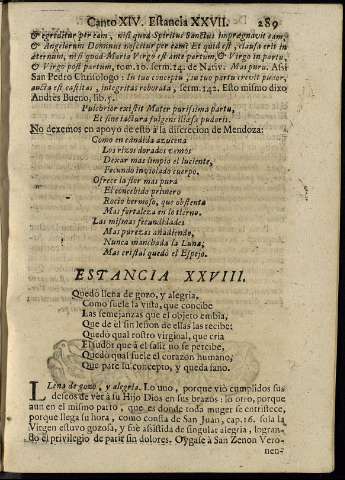 Canto XIV. Estancia XXVII. 289
& egreditur per eam, nisi quod Spiritus Sanctus impregnavit eam,
& Angelorum Dominus nascitur per eam? Et quid est, clausa erit in
æternum, nisi quod Maria Virgo est ante partum, & Virgo in partu,
& Virgo post partum, tom. 10. serm. 14. de Nativ. Mas puro. Assi
San Pedro Chrisologo: In tuo conceptu, in tuo partu crevit pudor,
aucta est castitas, integritas roborata, serm. 142. Esto mismo dixo
Andrès Bueno, lib. 5.
Pulchrior existit Mater purissima partu,
Et sine iactura fulgens illæsa pudoris.
No dexemos en apoyo de esto à la discrecion de Mendoza:
Como en candida azucena
Los rizos dorados vemos
Dexar mas limpio el luciente,
Fecundo inviolado cuerpo,
Ofrece la flor mas pura
El concebido primero
Rocio hermoso, que obstenta
Mas fortaleza en lo tierno.
Las mismas fecundidades
Mas purezas añadiendo,
Nunca manchada la Luna,
Mas cristal quedò el Espejo.
ESTANCIA XXVIII.
Quedò llena de gozo, y alegria,
Como suele la vista, que concibe
Las semejanzas que el objeto embia,
Que de èl sin lesion de ellas las recibe:
Quedò qual rostro virginal, que cria
El sudor que à el salir no se percibe,
Quedò qual suele el corazon humano,
Que pare su concepto, y queda sano.
LLena de gozo, y alegria. Lo uno, porque viò cumplidos sus
deseos de vèr à su Hijo Dios en sus brazos: lo otro, porque
aun en el mismo parto, que es donde toda muger se entristece,
porque llega su hora, como consta de San Juan, cap. 16. sola la
Virgen estuvo gozosa, y fue assistida de singular alegria, logran-
do el privilegio de parir sin dolores. Oygase à San Zenon Vero-
nen-